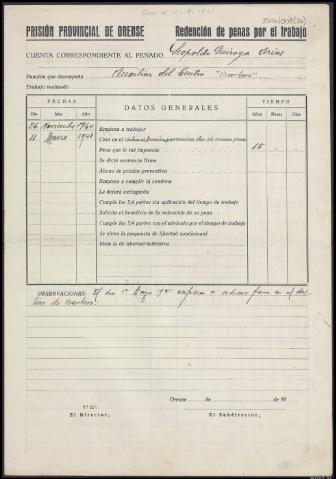 PRISIÓN PROVINCIAL DE ORENSE
Redención de penas por el trabajo
CUENTA CORRESPONDIENTE AL PENADO Leopoldo Quiroga Arias
Función que desempeña Auxiliar del Centro "Barbero"
Trabajo realizado
FECHAS
DATOS GENERALES
TIEMPO
Día Mes Año
Años Meses Días
26 Noviembre 1940 Empieza a trabajar
11 Marzo 1941 Cesa en el
Pena que le fué impuesta 15
Se dictó sentencia firme
Abono de prisión preventiva
Empieza a cumplir la condena
La dejará extinguida
Cumple las 3/4 partes sin aplicación del tiempo de trabajo
Solicita el beneficio de la redención de su pena
Cumple las 3/4 partes con el adelanto por el tiempo de trabajo
Se eleva la propuesta de libertad condicional
Idem la de libertad definitiva
OBSERVACIONES: El día 1º Mayo 1941 empieza a redimir pena en el des-
tino de Barbero.
Orense de de 19
V.º B.º:
El Director,
El Subdirector,